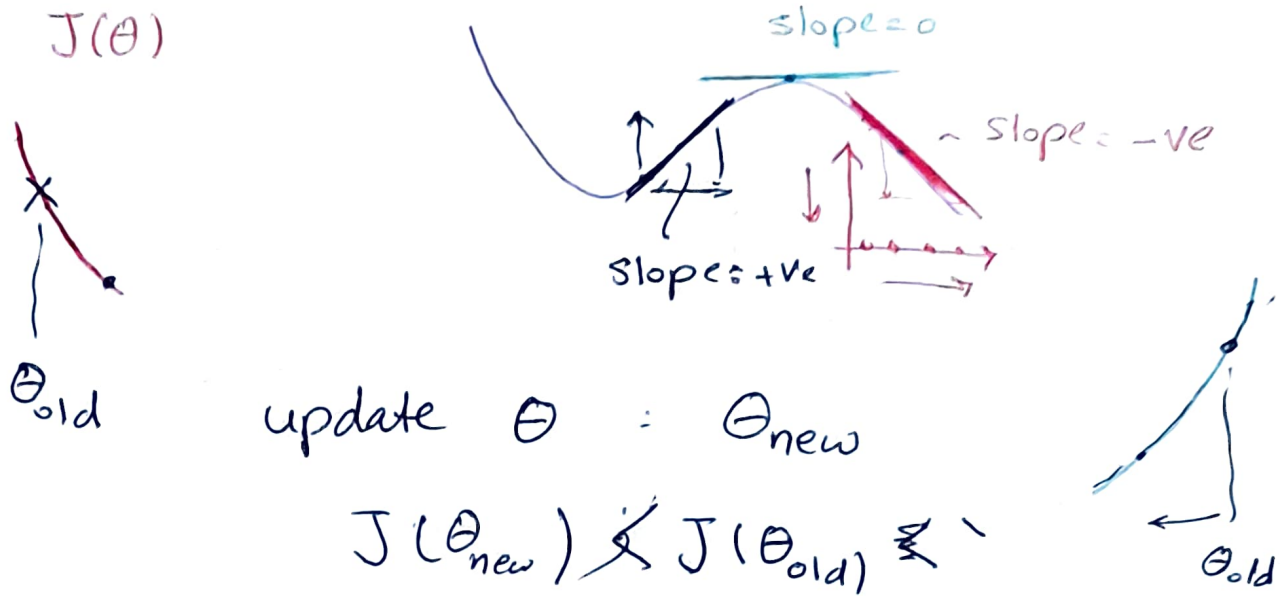 J(θ)
slope=0
slope= -ve
slope= +ve
θold
update θ : θnew
J(θnew) < J(θold)
θold